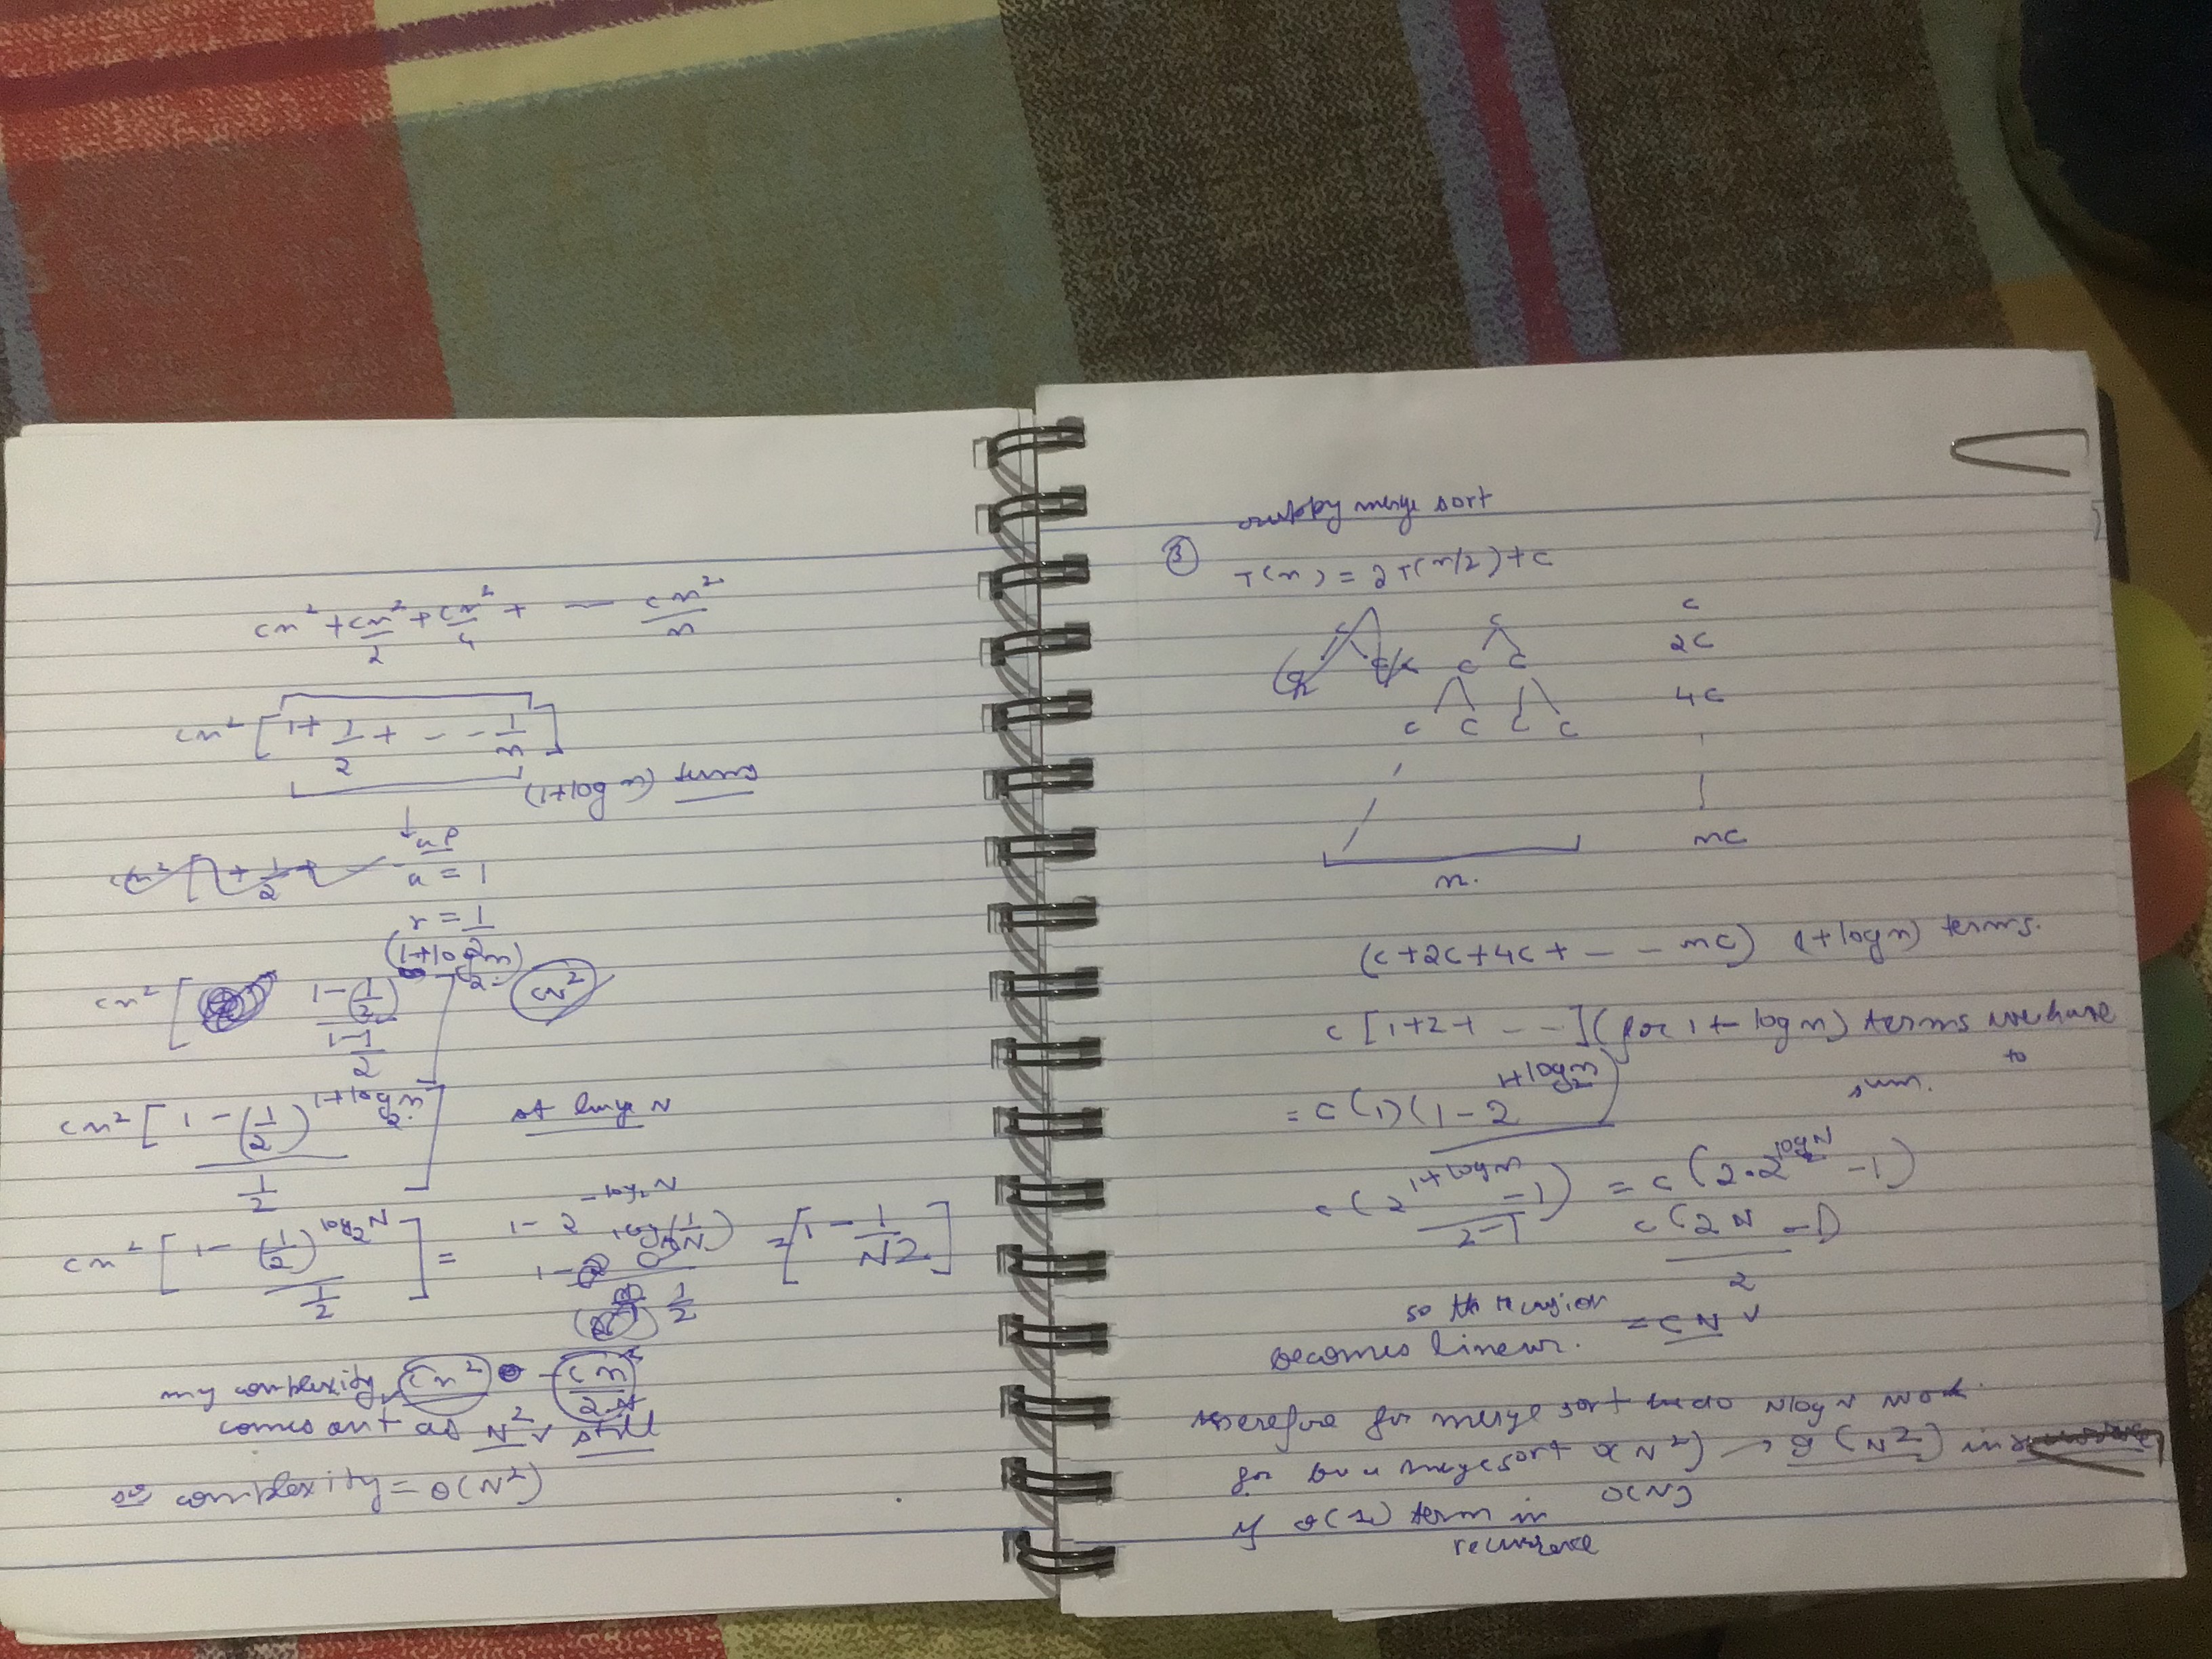 cn² + cn²/2 + cn²/4 + — cn²/n
cn² [1 + 1/2 + - - 1/n]
(1+log n) terms
↓ GP
cn² [1 + 1/2 +
a = 1
r = 1/2
cn² [ (1-(1/2)^(1+log₂n)) / (1-1/2) ] cn²
cn² [ (1-(1/2)^(1+log₂n)) / (1/2) ] at large N
cn² [ (1-(1/2)^(log₂N)) / (1/2) ] = (1-2^(-log₂N)) / (1/2) = [1 - 1/N2]
my complexity cn² - cn²/2N
comes out as N² ✓ still
complexity = θ(N²)
merge sort
③ T(n) = 2T(n/2) + c
c c
c c 2c
c c c c 4c
n. nc
(c+2c+4c+ - - nc) (1+log n) terms.
c [1+2+ - - -] (for 1+log n) terms we have
to
sum.
= c(1)(1-2^(1+log₂n))
c(2^(1+log n) -1)/(2-1) = c(2·2^(log₂N) -1)
c(2N -1)/2
so the = cN ✓
becomes linear.
therefore for merge sort we do N log N work
for mergesort (N²) → θ(N²) in
O(N)
if θ(1) term in
recurrence